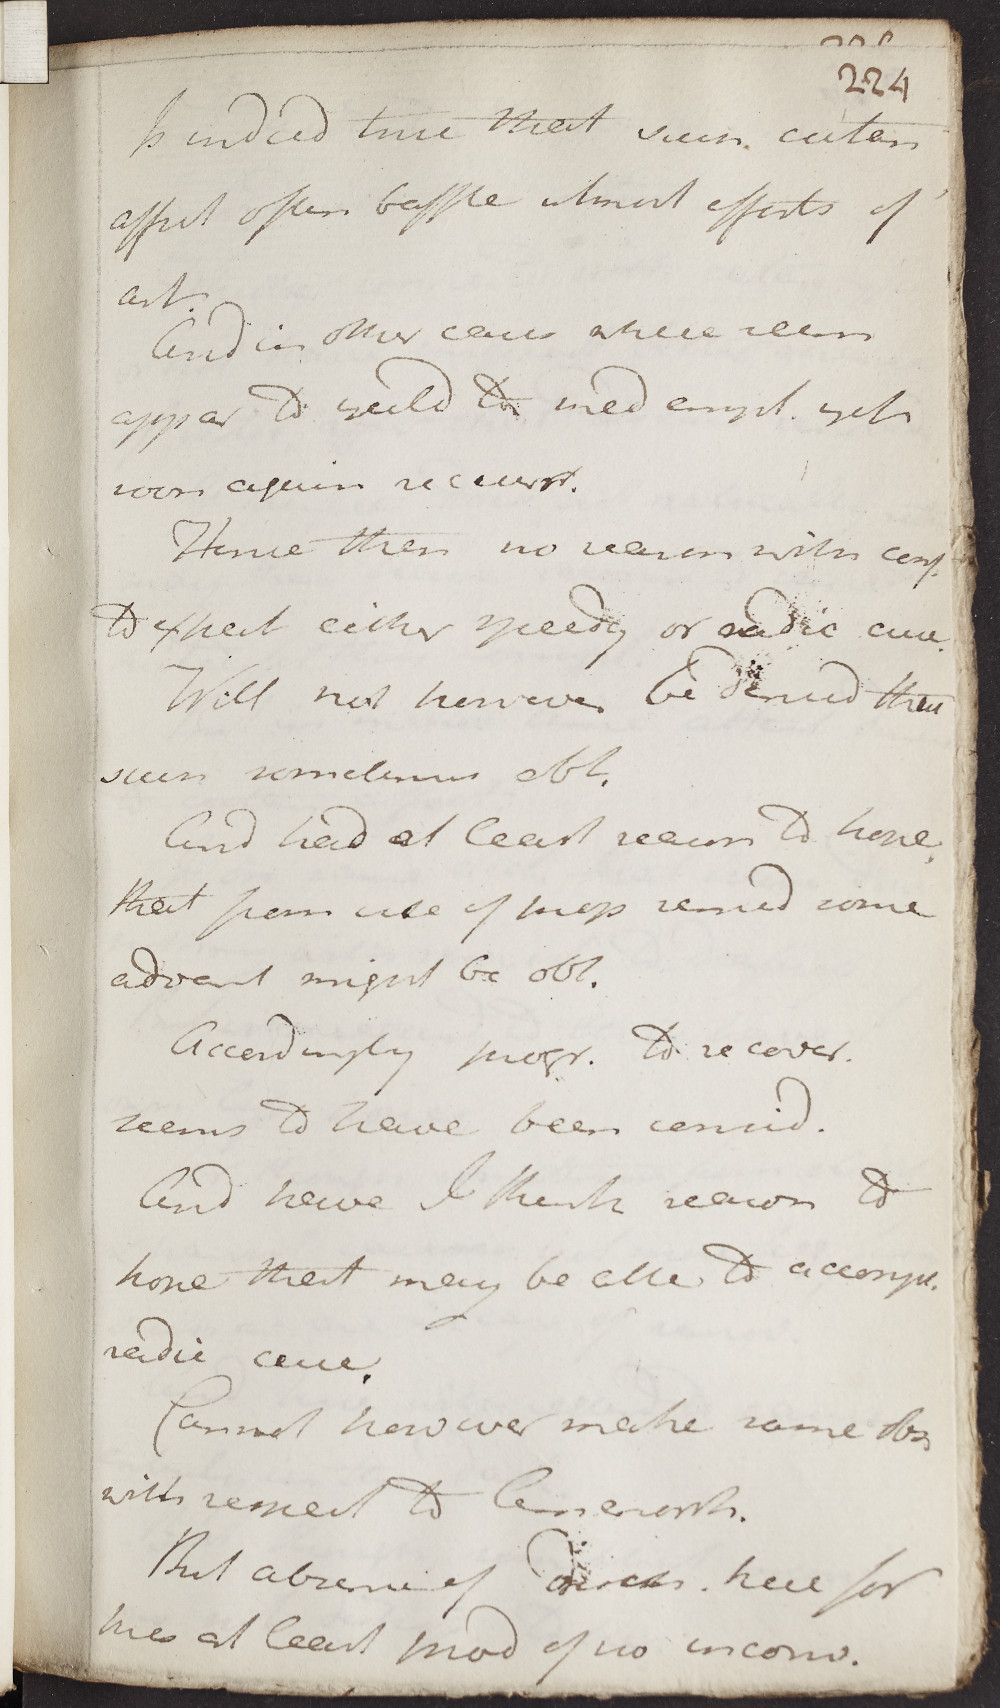 224
Is indeed true that such cutan
affect often baffle utmost efforts of
art.
And in other cases where seem
appar to yeild to med empl. yet
soon again recurr.
Hence then no reason with conf.
to expect either speedy or radic cure.
Will not however be denied that
such sometimes obt.
And had at least reason to hope,
that from use of prop remed some
advant might be obt.
Accordingly progr. to recover.
seems to have been consid.
And have I think reason to
hope that may be able to accompl.
radic cure.
Cannot however make same obs
with respect to
But absence of here for
has at least prod of no inconv.